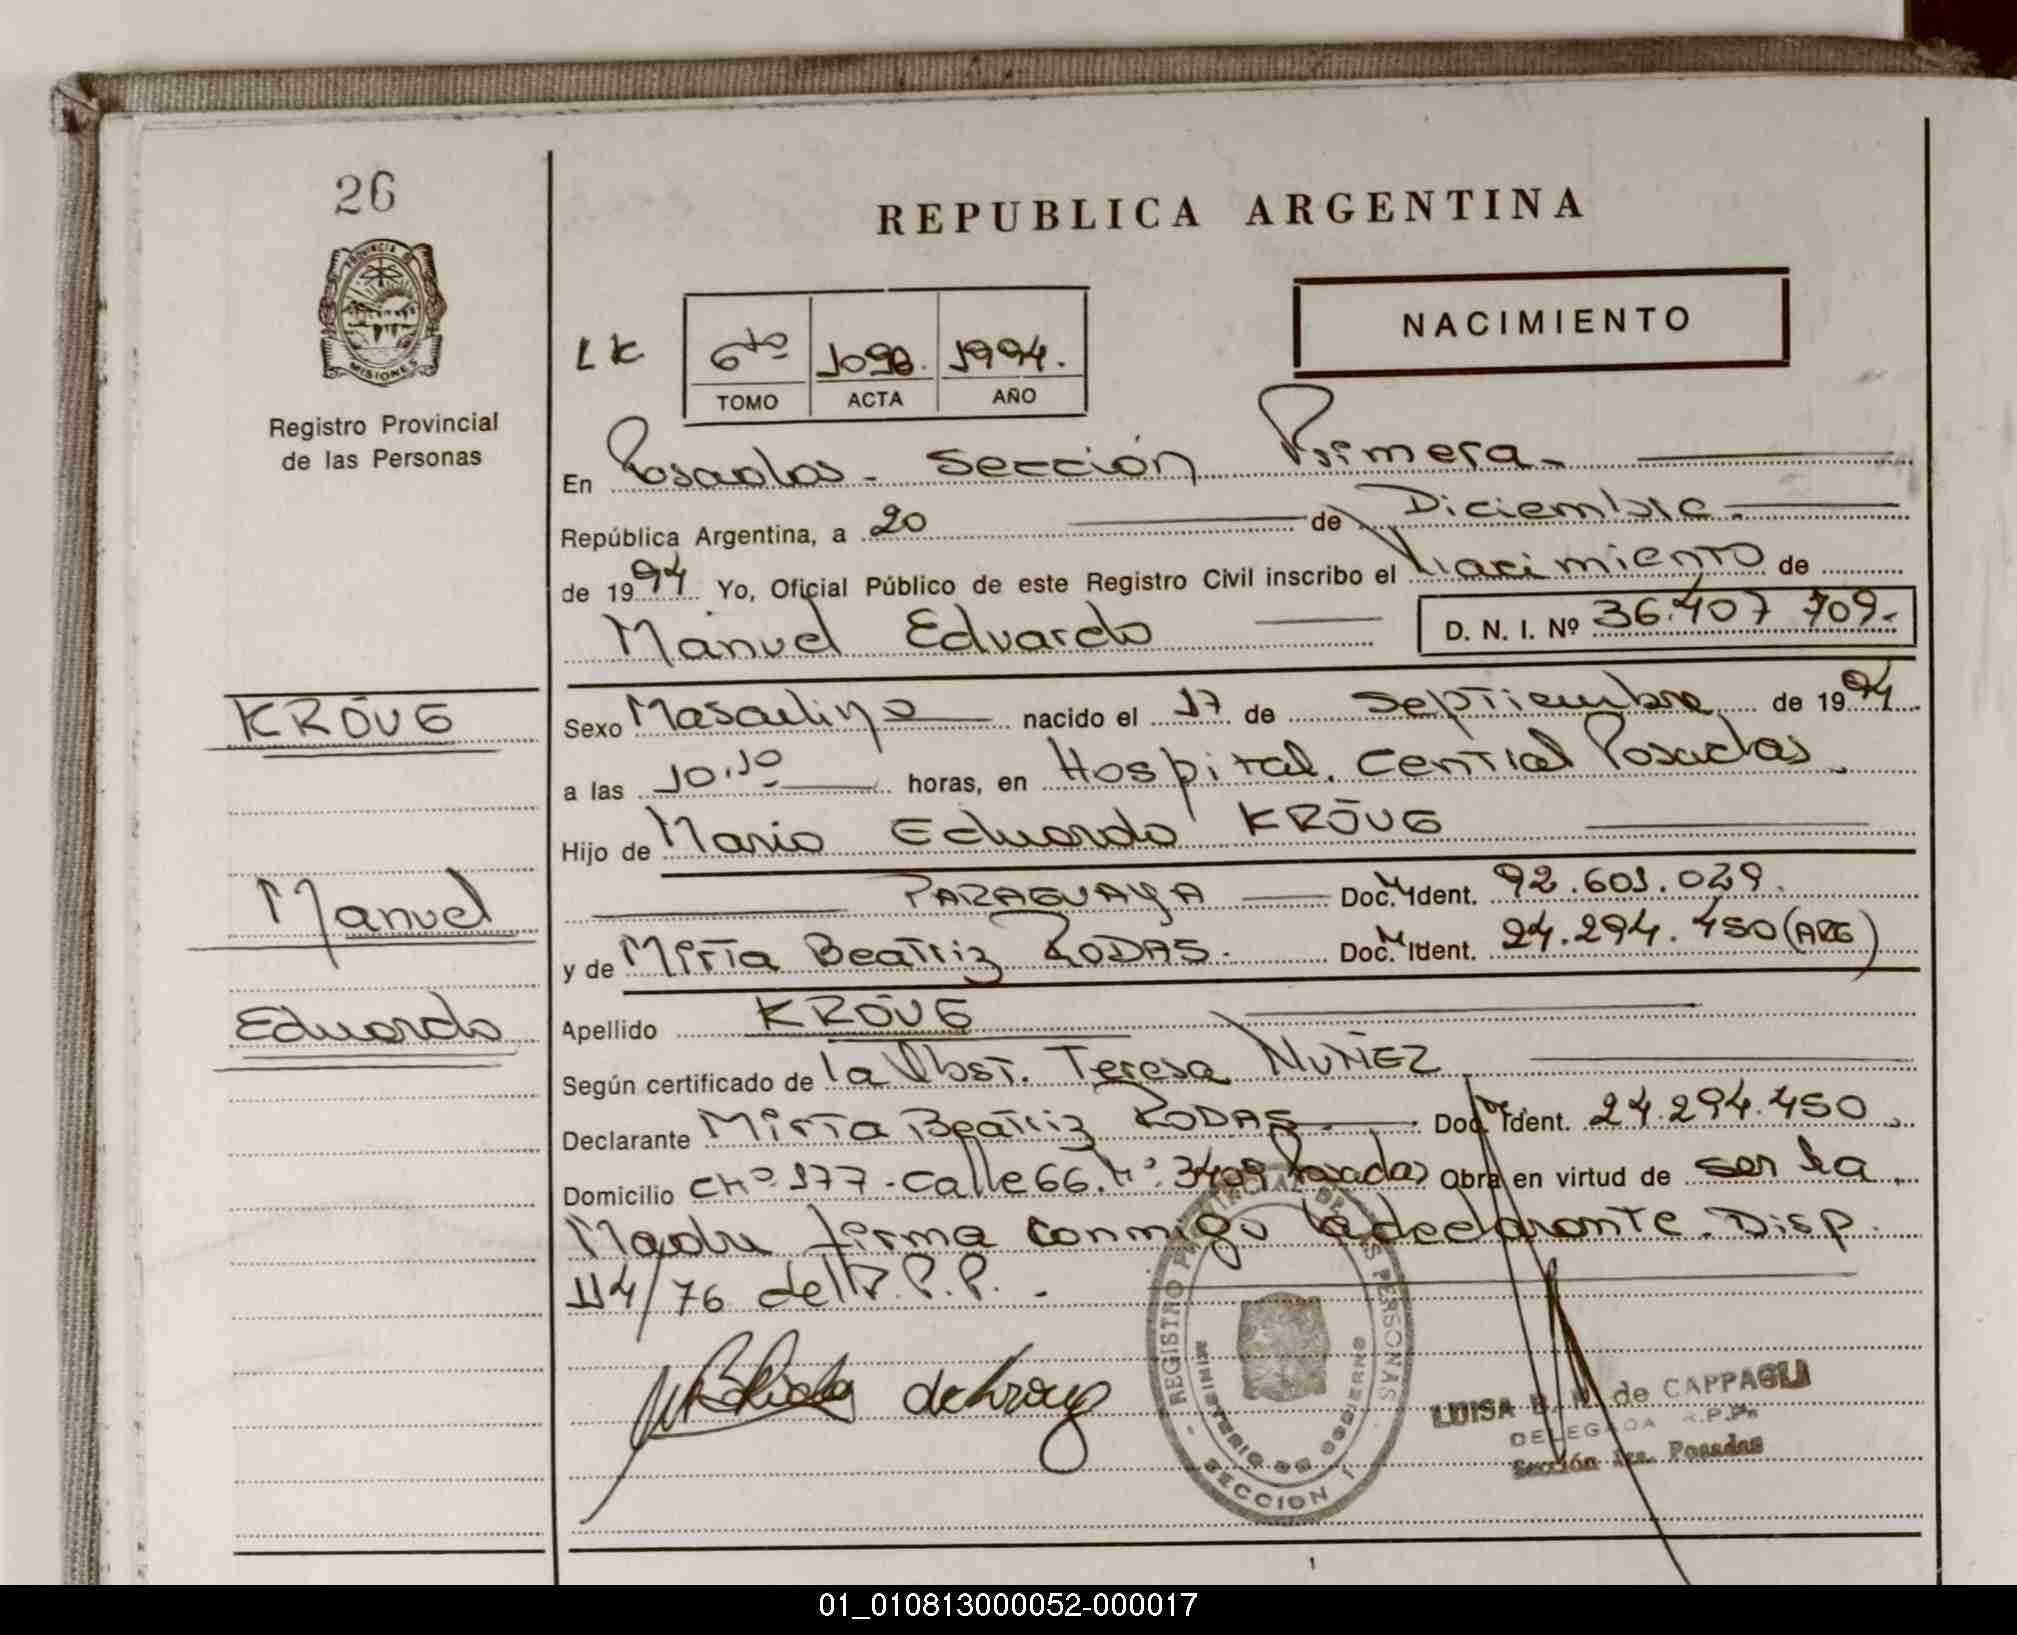 26
PROVINCIA DE
MISIONES
Registro Provincial
de las Personas
REPUBLICA ARGENTINA
NACIMIENTO
LK
6to 1098. 1994.
TOMO ACTA AÑO
En Posadas - Sección Primera.
República Argentina, a 20 de Diciembre.
de 1994 Yo, Oficial Público de este Registro Civil inscribo el Nacimiento de
Manuel Eduardo D. N. I. Nº 36.407 709.
KRÖUG
Sexo Masculino nacido el 17 de Septiembre de 1994.
a las 10.10 horas, en Hospital. Central Posadas.
Hijo de Mario Eduardo KRÖUG
Manuel
PARAGUAYA Doc. Ident. 92.601.029.
y de Mirta Beatriz RODAS. Doc. Ident. 24.294.450 (ARG)
Eduardo
Apellido KRÖUG
Según certificado de la Obst. Teresa NUÑEZ
Declarante Mirta Beatriz RODAS Doc. Ident. 24.294.450.
Domicilio CHº 177 - Calle 66. Nº 3409 Posadas Obra en virtud de ser la
Madre firma conmigo la declarante. Disp.
114/76 del R.P.P. -
REGISTRO PROVINCIAL DE LAS PERSONAS
MINISTERIO DE GOBIERNO
SECCION 1
LUISA B. N. de CAPPAGLI
DELEGADA R.P.P.
Sección 1ra. Posadas
1
01_010813000052-000017